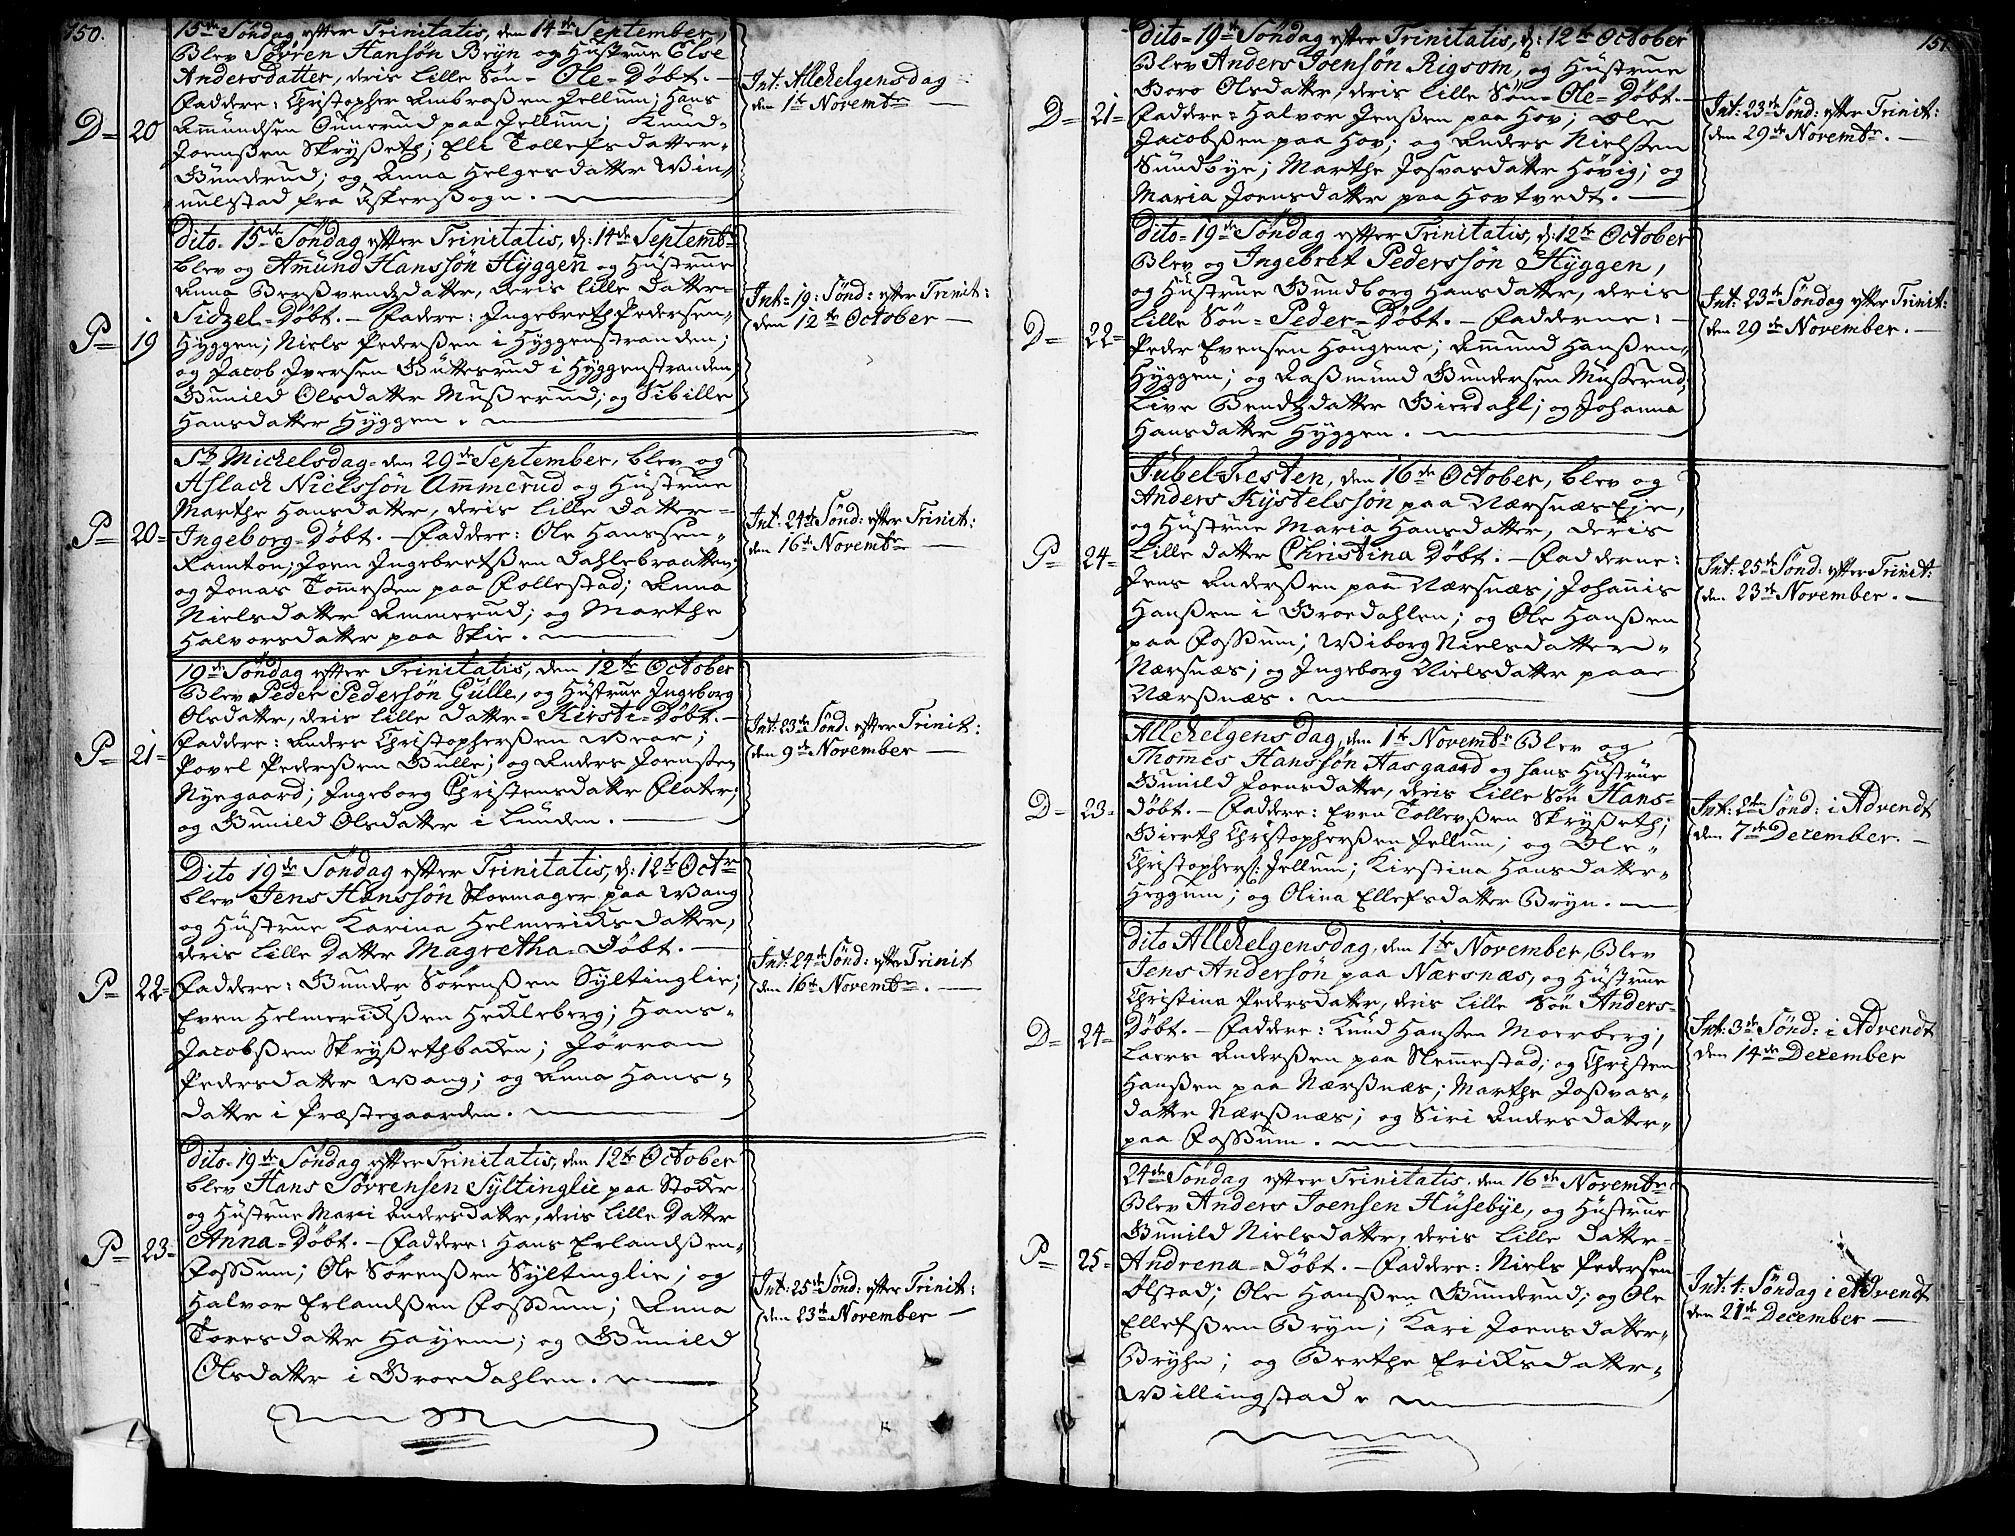 150.
15de Søndag effter Trinitatis, den 14de September,
Blev Søfren Hansøn Bryn og Hustrue Else
Andersdatter, deris lille Søn = Ole = Døbt. —
Faddere: Christopher Ambrosßen Jellum; Hans
D= 20
Amundsen Gunerud paa Jellum; Knud
Joensßen Skryßeth; Eli Tollefsdatter
Gunderud; og Anna Helgesdatter Win-
nulstad fra Askersogn.
Int: Allehelgensdag
den 1te Novembr —
Dito 15de Søndag effter Trinitatis, d: 14de Septembr
blev og Amund Hanssøn Hyggen og Hustrue
Anna Berßvendsdatter, deris lille datter
Sidzel = Døbt. — Faddere: Ingebreth Pedersen
P= 19
Hyggen; Niels Pedersßen i Hyggenstranden;
og Jacob Iversen Buttesrud i Hyggenstranden,
Gunild Olsdatter Mußerud; og Sibille
Hansdatter Hyggen.
Int= 19: Sønd: effter Trinit:
den 12te October —
St Michelsdag = den 29de September, blev og
Aslach Nielssøn Ammerud og Hustrue
Marthe Hansdatter, deris lille datter
P= 20=
Ingeborg = Døbt. — Faddere: Ole Hanssen
Ramton; Joen Ingebretsßen Dahlebraatten;
og Jonas Tommesßen paa Follestad; Anna
Nielsdatter Ammerud; og Marthe
Halvorsdatter paa Skie.
Int: 24de Sønd: effter Trinit:
den 16de Novembr —
19de Søndag effter Trinitatis, den 12te October
Blev Peder Pedersøn Gulle, og Hustrue Ingeborg
Olsdatter, deris lille datter = Kirsti = Døbt. —
Faddere: Anders Christophersßen Wear;
P= 21=
Povel Pedersßen Gulle; og Anders Joensßen
Nyegaard; Ingeborg Christensdatter Flater;
og Gunild Olsdatter i Lunden.
Int: 23de Sønd: effter Trinit:
den 9de November —
Dito 19de Søndag effter Trinitatis, d: 12te Octr
blev Jens Hanssøn Skoemager paa Wang
og Hustrue Karina Helmericksdatter,
deris lille datter Magretha = Døbt. —
P= 22=
Faddere: Gunder Sørensßen Syltinglie;
Even Helmericksßen Heckleberg; Hans
Jacobsßen Skryßethbacken; Jørran
Pedersdatter Wang; og Anna Hans-
datter i Præstegaarden.
Int: 24de Sønd: effter Trinit
den 16de Novembr. —
Dito = 19de Søndag effter Trinitatis, den 12te October
blev Hans Sørrensen Syltinglie paa Stocker
og Hustrue Mari Andersdatter, deris lille datter
P= 23=
Anna = Døbt. — Faddere: Hans Erlandsßen
Foßum; Ole Sørensßen Syltinglie; og
Halvor Erlandsßen Foßum; Anna
Toresdatter Hayem; og Gunild
Olsdatter i Broedahlen.
Int: 25de Sønd: effter Trinit:
den 23de November —
151.
Dito = 19de Søndag effter Trinitatis, d: 12te October
Blev Anders Joensøn Rigsom, og Hustrue
Boro Olsdatter, deris lille Søn = Ole = Døbt. —
D= 21=
Faddere = Halvor Jensßen paa Hov; Ole
Jacobsßen paa Hov; og Anders Nielsßen
Sundbye; Marthe Josvasdatter Høvig; og
Maria Joensdatter paa Hovtvedt. —
Int: 23de Sønd: effter Trinit:
den 29de Novembr. —
Dito = 19de Søndag effter Trinitatis, d: 12te October
Blev og Ingebret Pedersøn Hyggen,
og Hustrue Gundborg Hansdatter, deris
lille Søn = Peder = Døbt. — Fadderne:
D= 22=
Peder Evensen Hougene; Amund Hansßen
Hyggen; og Raßmund Gundersen Mußerud;
Live Bendtsdatter Bierdahl; og Johanna
Hansdatter Hyggen.
Int: 23de Søndag effter Trinit:
den 29de November. —
Jubel Festen, den 16de October, blev og
Anders Kystelssøn paa NærsnæsEye,
og Hustrue Maria Hansdatter, deris
P= 24=
lille datter Christina Døbt. — Fadderne:
Jens Andersßen paa Nærsnæs; Johannis
Hansßen i Broedahlen; og Ole Hansßen
paa Foßum; Wiborg Nielsdatter
Nærsnæs; og Ingeborg Nielsdatter paa
Nærßnæs.
Int: 25de Sønd: effter Trinit:
den 23de November. —
Allehelgensdag, den 1te Novembr Blev og
Thomes Hanssøn Aasgaard og hans Hustrue
Gunild Joensdatter, deris lille Søn Hans =
D= 23=
Døbt. — Faddere: Even Tollevsßen Skryßeth;
Bierth Christophersßen Jellum; og Ole
Christophers: Jellum; Kirstina Hansdatter
Heggum; og Olina Ellefsdatter Bryn. —
Int: 2den Sønd: i Advendt
den 7de December. —
Dito Allehelgensdag, den 1te November, Blev
Jens Andersøn paa Nærsnæs, og Hustrue
Christina Pedersdatter, deris lille Søn Anders =
D= 24=
Døbt. — Faddere: Knud Hansßen Moerberg;
Laers Andersßen paa Slemmestad; og Christen
Hansßen paa Nærßnæs; Marthe Josvas-
datter Nærßnæs; og Siri Andersdatter
paa Foßum.
Int: 3de Sønd: i Advendt
den 14de December
24de Søndag effter Trinitatis, den 16de Novembr
Blev Anders Joensen Husebye, og Hustrue
Gunild Nielsdatter, deris lille datter
P= 25=
Andrena = Døbt. — Faddere: Niels Pedersen
Alstad; Ole Hansßen Gunderud; og Ole
Ellefsßen Bryn; Kari Joensdatter
Bryhn; og Berthe Ericksdatter
Willingstad.
Int: 4: Søndag i Advendt
den 21de December —